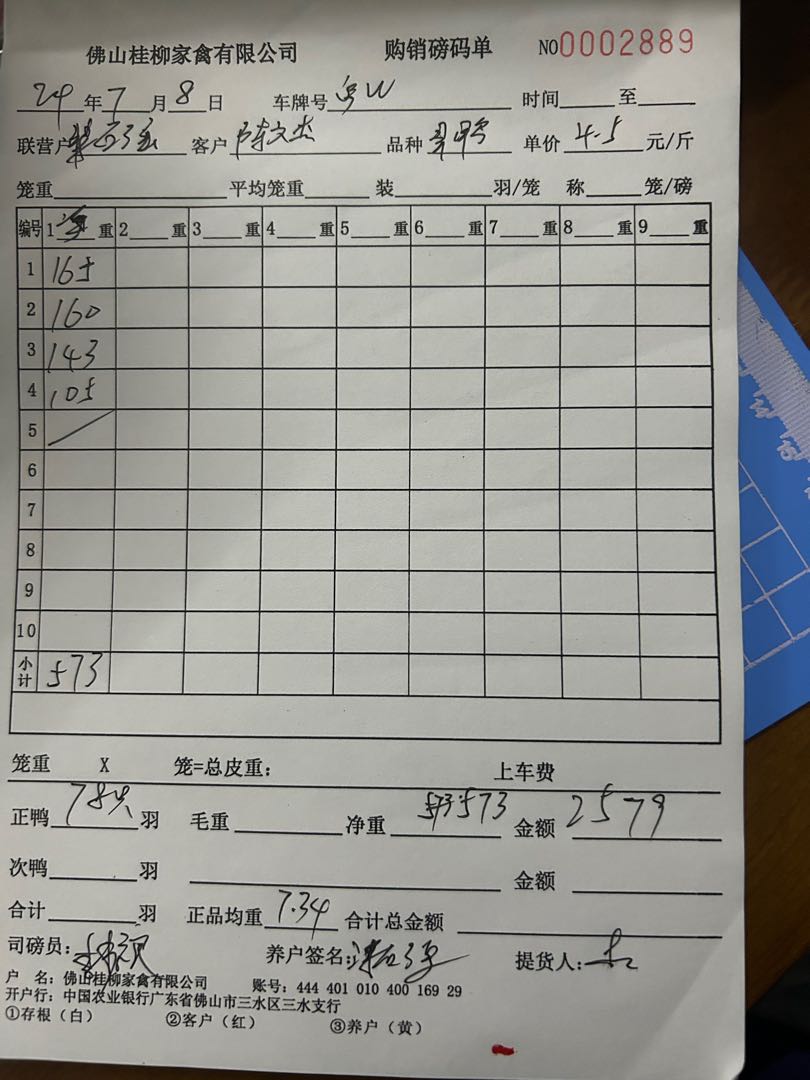 佛山桂柳家禽有限公司 购销磅码单 NO0002889
24年7月8日 车牌号粤W 时间 至
联营户 客户陈文杰 品种 单价4.5元/斤
笼重 平均笼重 装 羽/笼 称 笼/磅
编号 1 重 2 重 3 重 4 重 5 重 6 重 7 重 8 重 9 重
1 165
2 160
3 143
4 105
5
6
7
8
9
10
小计 573
笼重 X 笼=总皮重: 上车费
正鸭78只羽 毛重 净重 573 573 金额2579
次鸭 羽 金额
合计 羽 正品均重7.34 合计总金额
司磅员: 养户签名: 提货人:
户 名: 佛山桂柳家禽有限公司 账号: 444 401 010 400 169 29
开户行: 中国农业银行广东省佛山市三水区三水支行
①存根(白) ②客户(红) ③养户(黄)